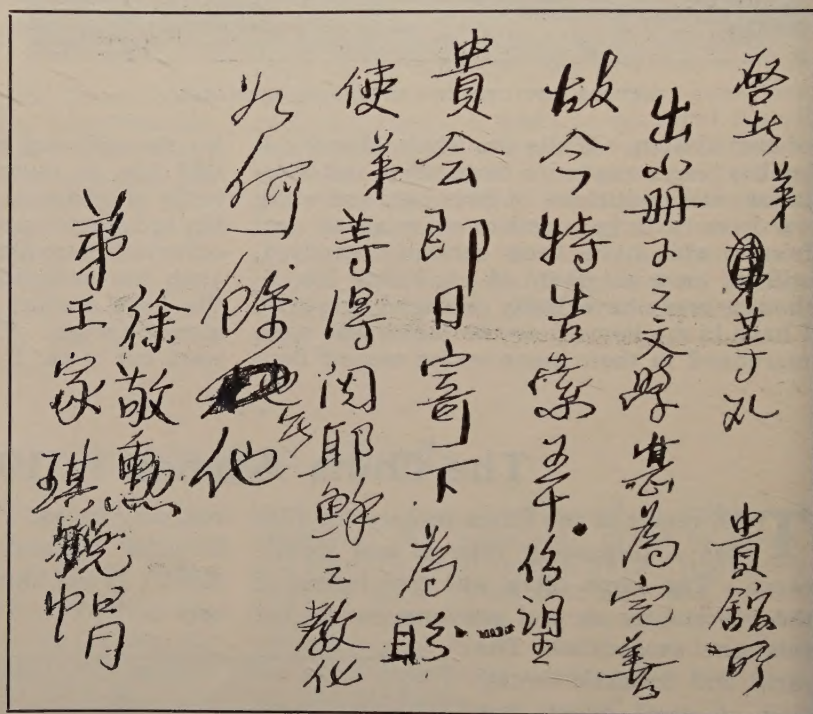 啓者弟等見 貴館所
出小册子之文學甚為完善
故今特告索五十份望
貴会即日寄下為盼
使弟等得閱耶穌之教化
如何餘無他
徐敬勳
弟王家琪 帽